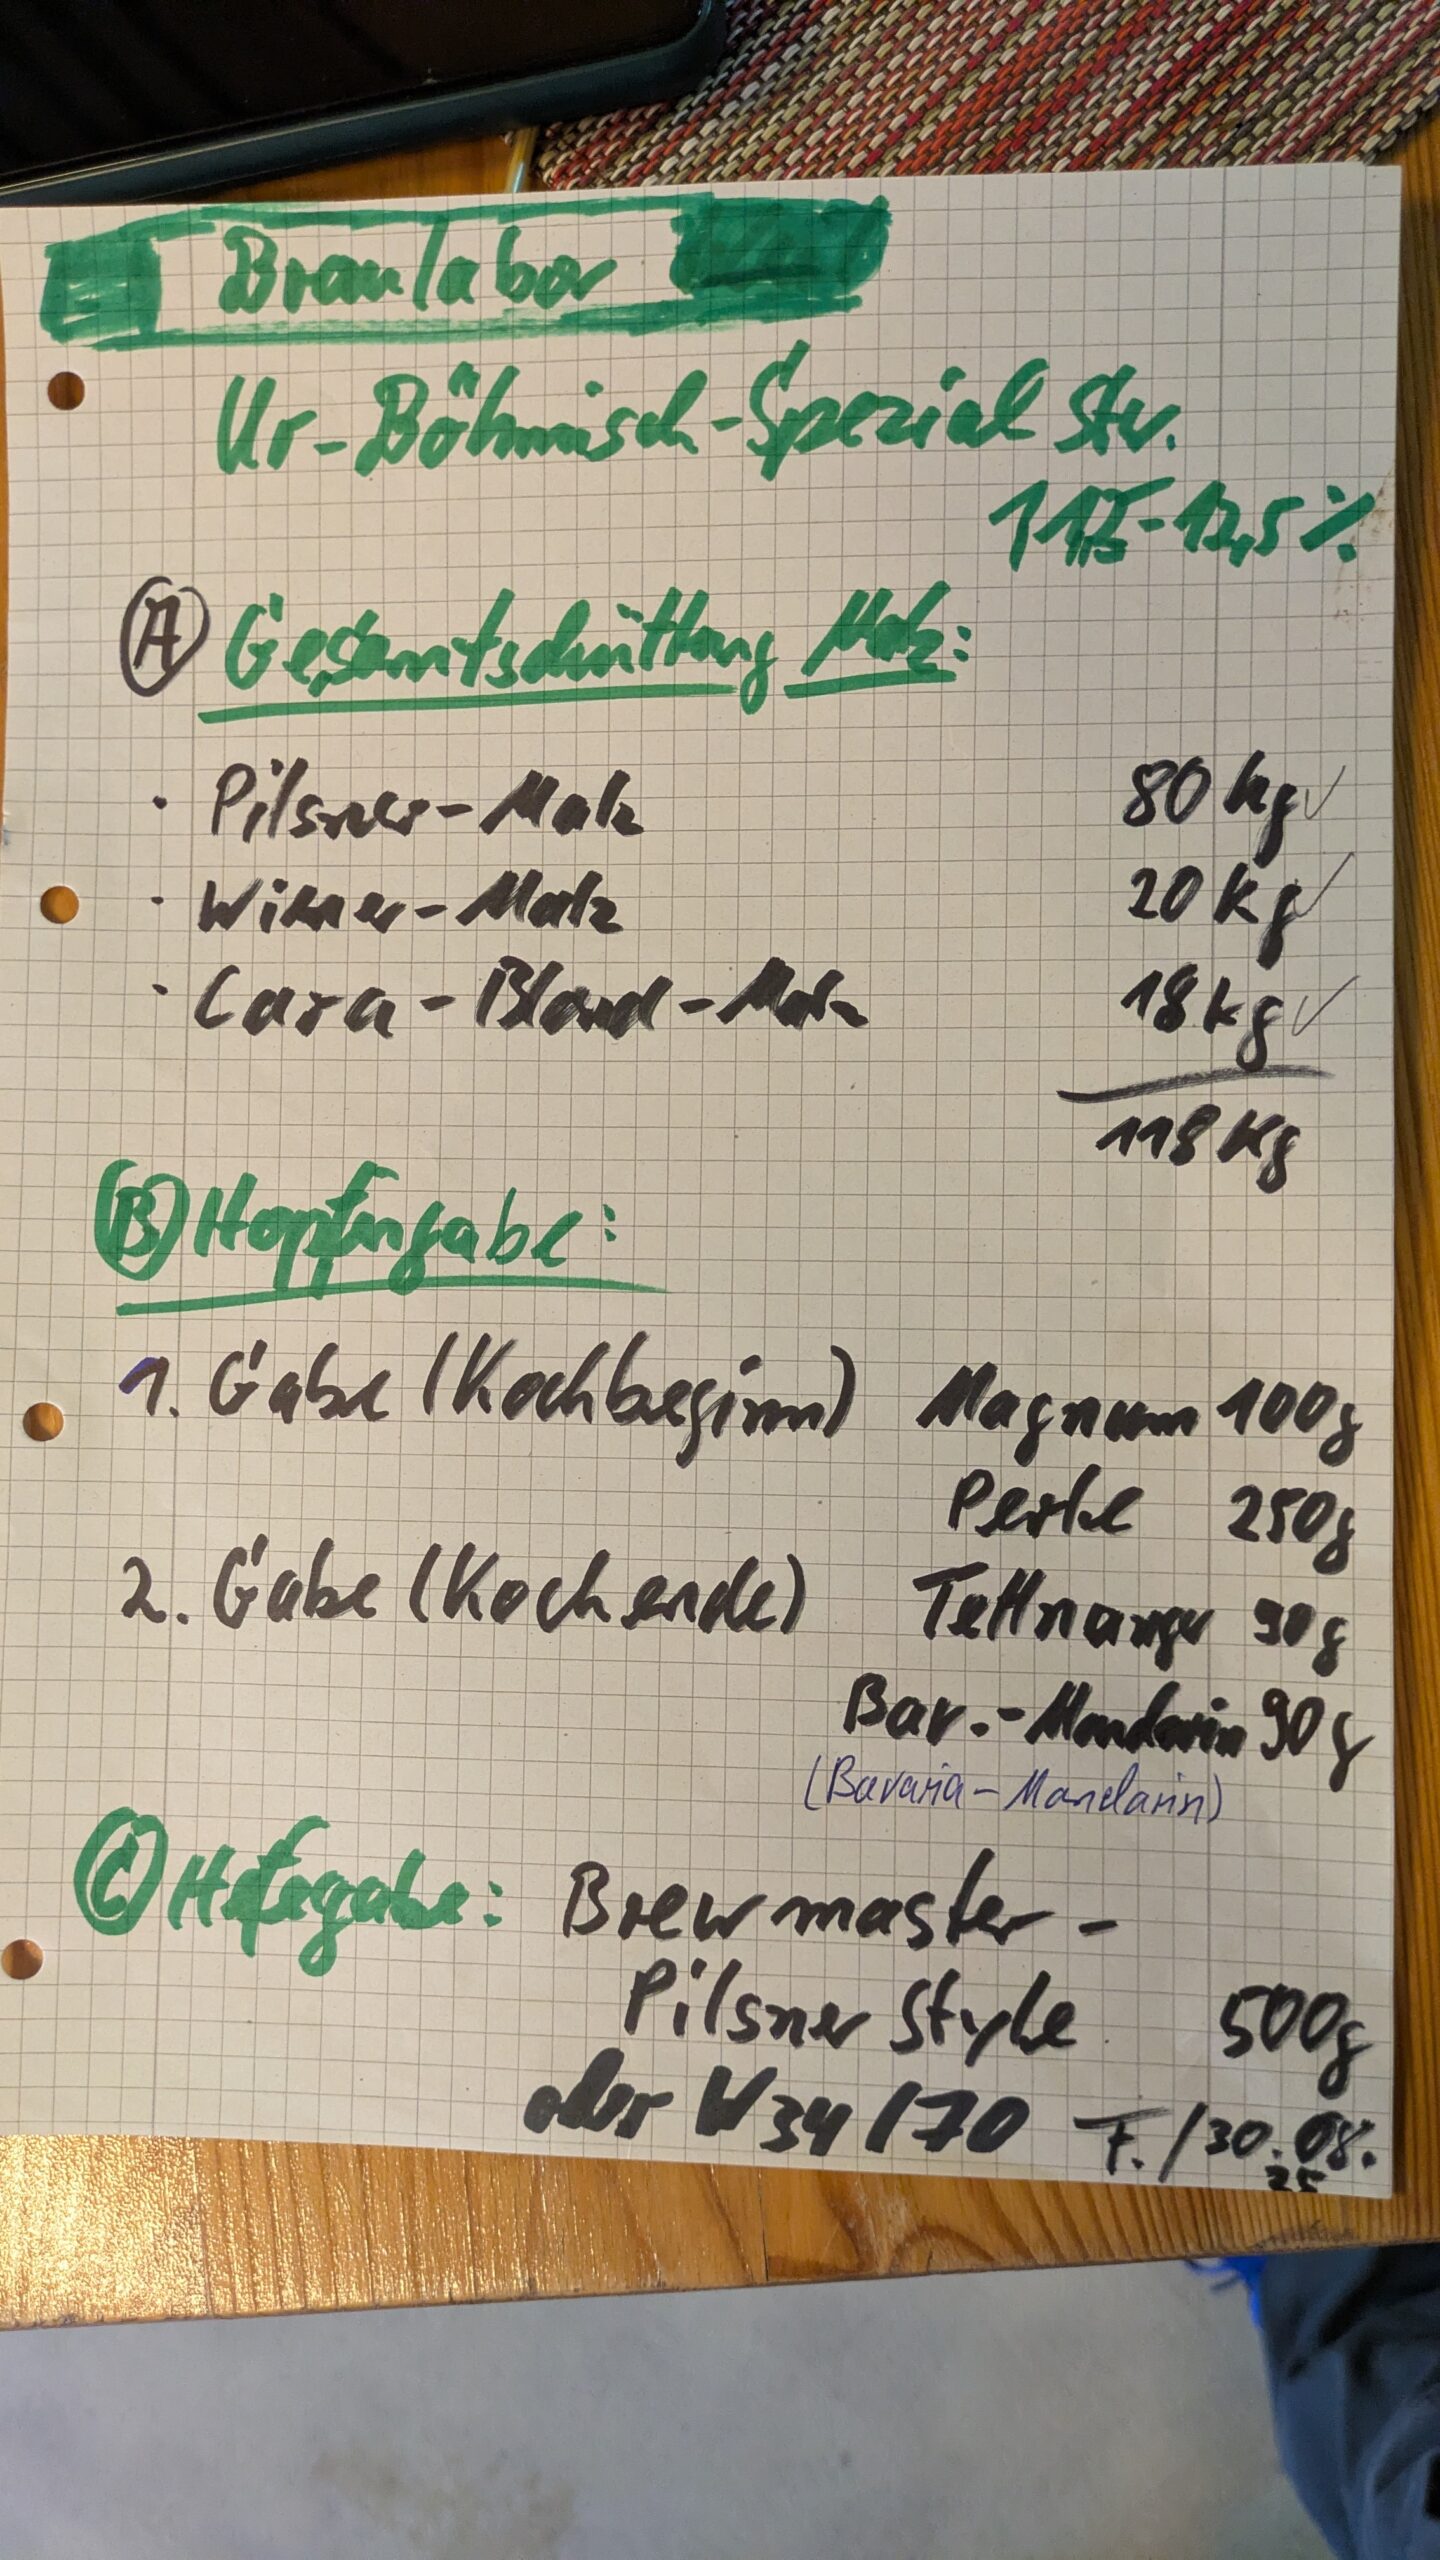 Braulabor
Ur-Böhmisch-Spezial Stw.
11,5-12,5%
(A) Gesamtschüttung Malz:
· Pilsner-Malz 80 kg ✓
· Wiener-Malz 20 kg ✓
· Cara-Blond-Malz 18 kg ✓
118 Kg
(B) Hopfengabe:
1. Gabe (Kochbeginn) Magnum 100g
Perle 250g
2. Gabe (Kochende) Tettnanger 90g
Bar.-Mandarin 90g
(Bavaria-Mandarin)
(C) Hefegabe: Brewmaster-
Pilsner Style 500g
oder W34/70 F./30.08.
25